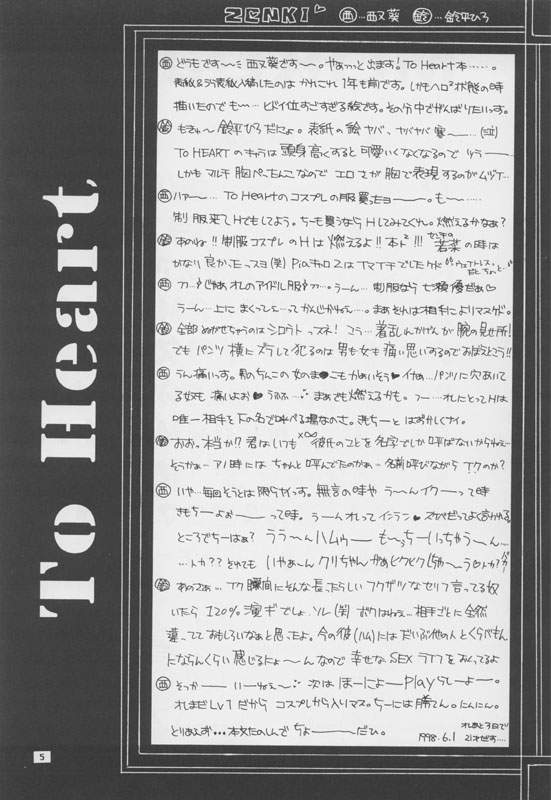 ZENKI♡ 西…西又葵 鈴…鈴平ひろ
To Heart
西 どうもです〜 西又葵です〜。やぁっっと出ます! To Heart本……。
表紙&ウラ表紙入稿したのは かれこれ1年も前です。しかもヘロ²状態の時
描いたのでも〜… ヒドイ位すごすぎる絵です。その分中でがんばりたいっす。
鈴 鈴平ひろだにょ。表紙の絵ヤバ、ヤバヤバ 寒〜…(泣)
TO HEARTのキャラは頭身高くすると可愛いくなくなるので ツラー
しかもマルチ胸ぺったんこなので エロさが胸で表現するのがムヅイ…
西 ハァー… To Heartのコスプレの服買ったョー。も〜……
制服来てHでもしてよう。ちーも買うならHしてみてくれ。燃えるかなぁ?
鈴 あのね!!制服コスプレのHは燃えるよ!!本ト²!!! 若菜の時は
かなり良かったっスョ(笑) Piaキャロ2はイマイチでしたケド
西 じゃあオレのアイドル服 …うーん… 制服なら七瀬優だぁ♡
うーん…上にまくって…ってかんじかねぇ…。まぁそれは相手によりマスケド。
鈴 全部ぬがせちゃうのはシロウトっスネ! 着乱しかげんが腕の見せ所!
でもパンツ横にズラして犯るのは男も女も痛い思いするのでおぼえとう!!
西 うん痛いっす。パンツに穴あいて
る奴も痛いよお♡ まぁでも燃えるかも。オレにとってHは
唯一相手を下の名で呼べる場なのさ。きもちーとはずかしくナイ。
鈴 おお、本当か!? 君はいつも彼氏のことを名字でしか呼ばないからねぇ…
そうかぁ…アノ時にはちゃんと呼んでたのかぁ… 名前呼びながらイクのか?
西 いや…毎回そうとは限らないっす。無言の時や うーんイクーって時
きもちーよぉーって時。うーんオレってインラン♡
ところでちーはぁ?
鈴 あのさぁ…イク瞬間にそんな長ったらしいフクザツなセリフ言ってる奴
いたら120%演ギでしょ、ソレ(笑) ボクはねぇ…相手ごとに全然
違ってておもしろいなぁと思ったよ。今の彼(ハム)にはだいぶ他の人とくらべもん
にならんくらい感じるにょ〜んなので 幸せなSEXライフをおくってるよ
西 そっかーいーねぇ〜 次はほーにょーplayらしーよー。
オレまだLv1だから コスプレから入りマス。ちーには勝てん。にんにん。
とりあえず…本文たのしんで ちょーーだひ。
1998.6.1 オレあと3日で
21才だす…
5